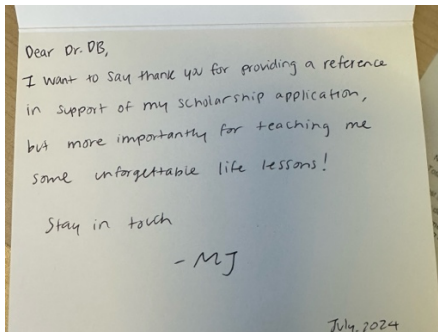 Dear Dr. DB,
I want to say thank you for providing a reference
in support of my scholarship application,
but more importantly for teaching me
some unforgettable life lessons!
Stay in touch
- MJ
July, 2024